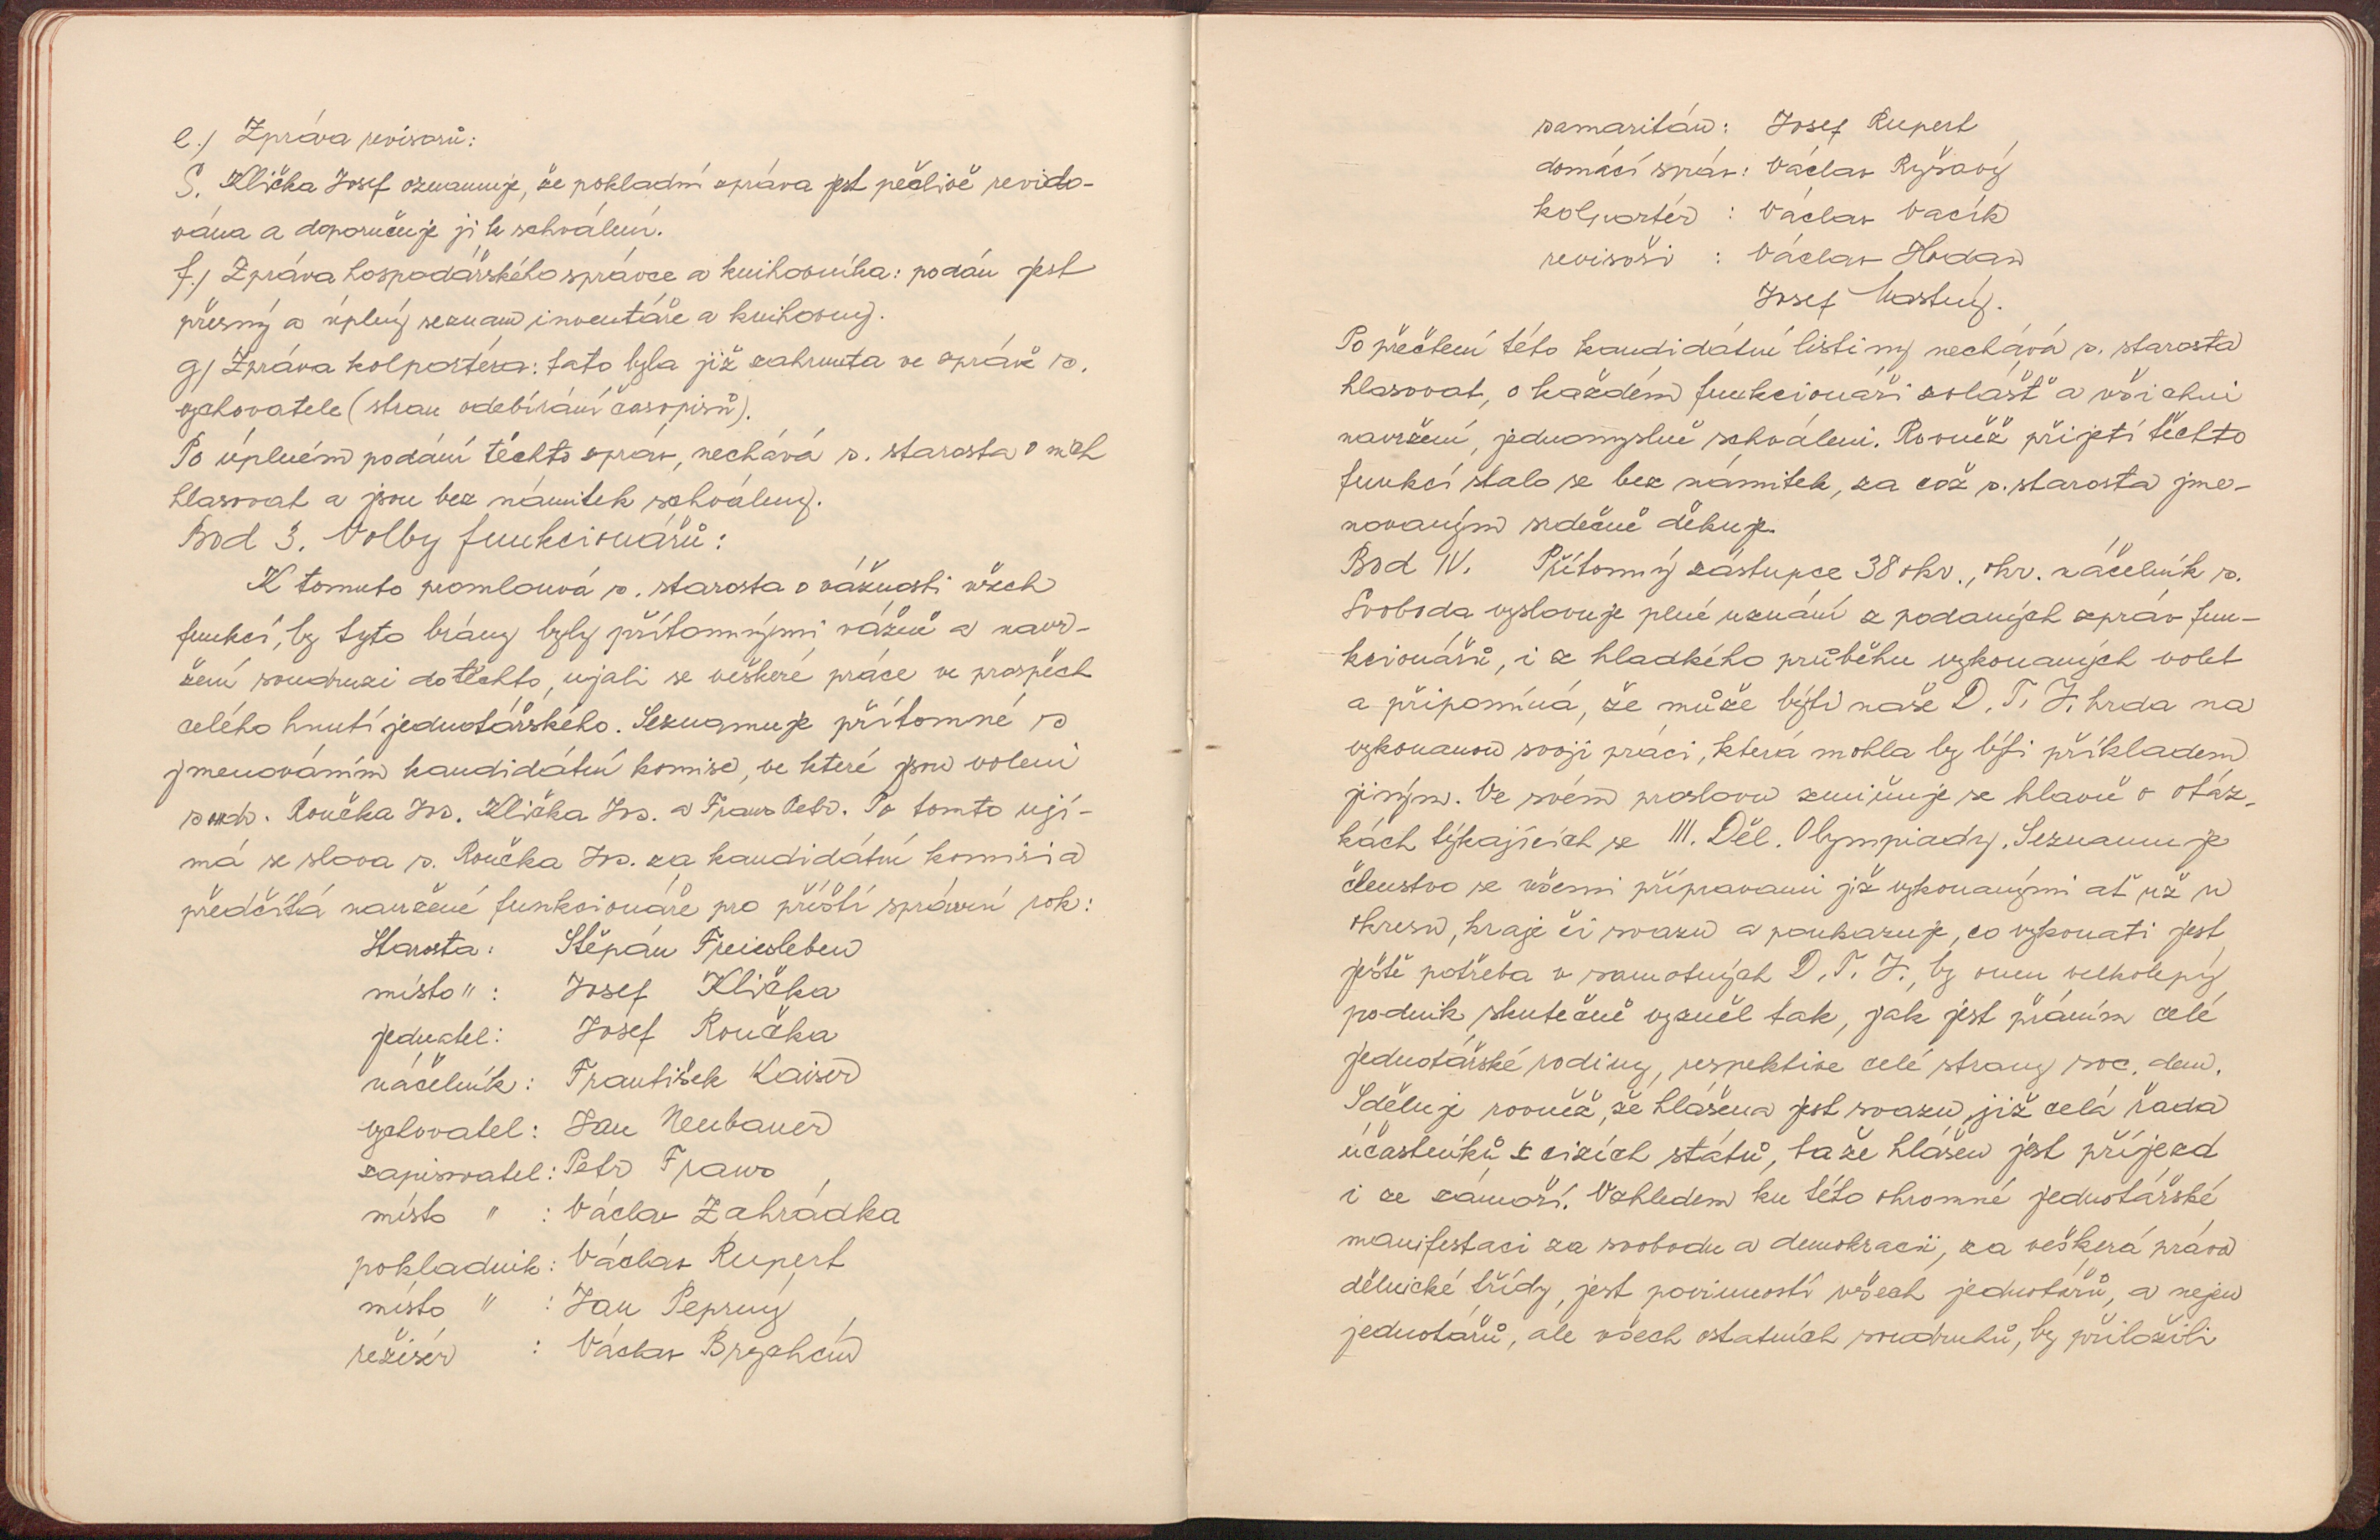 e./ Zpráva revisorů:
S. Klička Josef oznamuje, že pokladní zpráva jest pečlivě revido-
vána a doporučuje ji k schválení.
f./ Zpráva hospodářského správce a knihovníka: podán jest
přesný a úplný seznam inventáře a knihovny.
g/ Zpráva kolportéra: tato byla již zahrnuta ve zprávě s.
vychovatele (stran odebírání časopisů).
Po úplném podání těchto zpráv, nechává s. starosta o nich
hlasovat a jsou bez námitek schváleny.
Bod 3. Volby funkcionářů:
K tomuto promlouvá s. starosta o vážnosti všech
funkcí, by tyto brány byly přítomnými vážně a navr-
žení soudruzi do těchto, ujali se veškeré práce ve prospěch
celého hnutí jednotářského. Seznamuje přítomné s
jmenováním kandidátní komise, ve které jsou voleni
soudr. Roučka Jos. Klička Jos. a Fraus Petr. Po tomto ují-
má se slova s. Roučka Jos. za kandidátní komisi a
předčítá navržené funkcionáře pro příští správní rok:
Starosta: Štěpán Freiesleben
místo ": Josef Klička
jednatel: Josef Roučka
náčelník: František Kaiser
vychovatel: Jan Neubauer
zapisovatel: Petr Fraus
místo " : Václav Zahrádka
pokladník: Václav Rupert
místo " : Jan Peprný
režisér : Václav Brychcín
samaritán: Josef Rupert
domácí správ: Václav Ryšavý
kolportér : Václav Vacík
revisoři : Václav Hodan
Josef Šťastný.
Po přečtení této kandidátní listiny nechává s. starosta
hlasovat, o každém funkcionáři zvlášť a všichni
navržení, jednomyslně schváleni. Rovněž přijetí těchto
funkcí stalo se bez námitek, za což s. starosta jme-
novaným srdečně děkuje.
Bod IV. Přítomný zástupce 38 okr., okr. náčelník s.
Svoboda vyslovuje plné uznání z podaných zpráv fun-
kcionářů, i z hladkého průběhu vykonaných voleb
a připomíná, že může býti naše D. T. J. hrda na
vykonanou svoji práci, která mohla by býti příkladem
jiným. Ve svém proslovu zmiňuje se hlavně o otáz-
kách týkajících se III. Děl. Olympiady. Seznamuje
členstvo se všemi přípravami již vykonanými ať už u
okresu, kraje či svazu a poukazuje, co vykonati jest
ještě potřeba v samotných D. T. J., by onen velkolepý
podnik skutečně vyzněl tak, jak jest přáním celé
jednotářské rodiny, respektive celé strany soc. dem.
Sděluje rovněž, že hlášena jest svazu již celá řada
účastníků z cizích států, ta že hlášen jest příjezd
i ze zámoří. Vzhledem ku této ohromné jednotářské
manifestaci za svobodu a demokracii, za veškerá práva
dělnické třídy, jest povinností všech jednotářů, a nejen
jednotářů, ale všech ostatních soudruhů, by přiložili